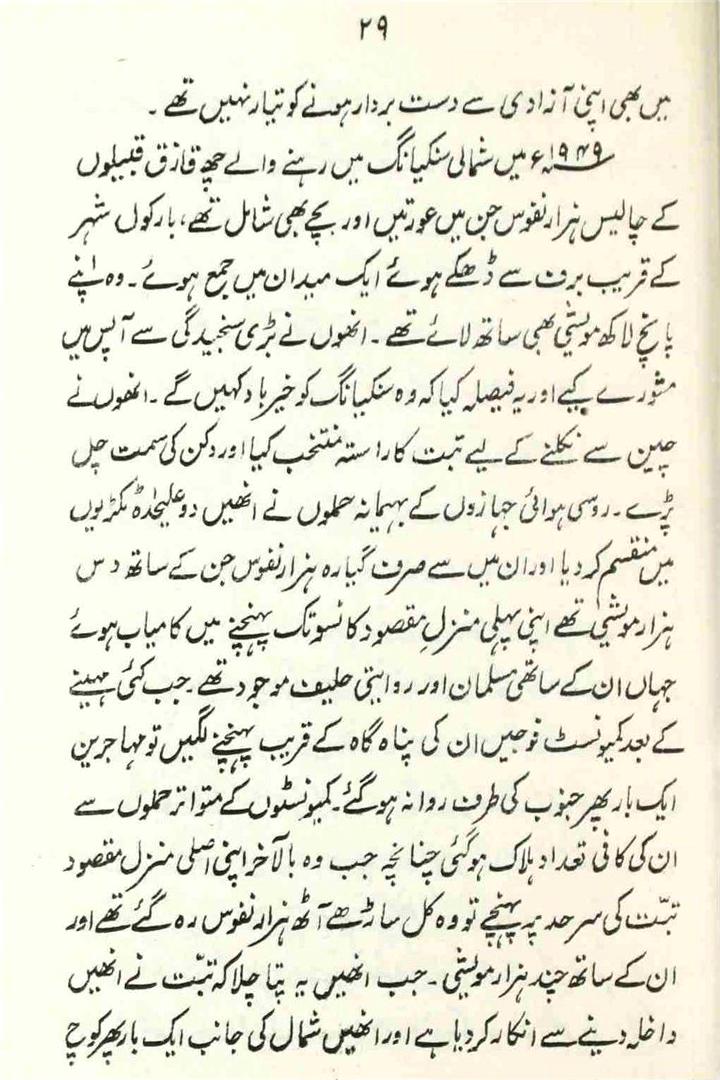 ۲۹
میں بھی اپنی آزادی سے دست بردار ہونے کو تیار نہیں تھے ۔
۱۹۴۹ء میں شمالی سنکیانگ میں رہنے والے چھ قازق قبیلوں
کے چالیس ہزار نفوس جن میں عورتیں اور بچے بھی شامل تھے، بارکول شہر
کے قریب برف سے ڈھکے ہوئے ایک میدان میں جمع ہوئے ۔ وہ اپنے
پانچ لاکھ مویشی بھی ساتھ لائے تھے ۔ انھوں نے بڑی سنجیدگی سے آپس میں
مشورے کیے اور یہ فیصلہ کیا کہ وہ سنکیانگ کو خیر باد کہیں گے ۔ انھوں نے
چین سے نکلنے کے لیے تبت کا راستہ منتخب کیا اور دکن کی سمت چل
پڑے ۔ روسی ہوائی جہازوں کے بہیمانہ حملوں نے انھیں دو علیحدٰہ ٹکڑیوں
میں منقسم کر دیا اور ان میں سے صرف گیارہ ہزار نفوس جن کے ساتھ دس
ہزار مویشی تھے اپنی پہلی منزلِ مقصود کانسو تک پہنچنے میں کامیاب ہوئے
جہاں ان کے ساتھی مسلمان اور روایتی حلیف موجود تھے ۔ جب کئی مہینے
کے بعد کمیونسٹ فوجیں ان کی پناہ گاہ کے قریب پہنچنے لگیں تو مہاجرین
ایک بار پھر جنوب کی طرف روانہ ہو گئے ۔ کمیونسٹوں کے متواتر حملوں سے
ان کی کافی تعداد ہلاک ہو گئی چنانچہ جب وہ بالآخر اپنی اصلی منزل مقصود
تبّت کی سرحد پر پہنچے تو وہ کل ساڑھے آٹھ ہزار نفوس رہ گئے تھے اور
ان کے ساتھ چند ہزار مویشی ۔ جب انھیں یہ پتا چلا کہ تبّت نے انھیں
داخلہ دینے سے انکار کر دیا ہے اور انھیں شمال کی جانب ایک بار پھر کوچ